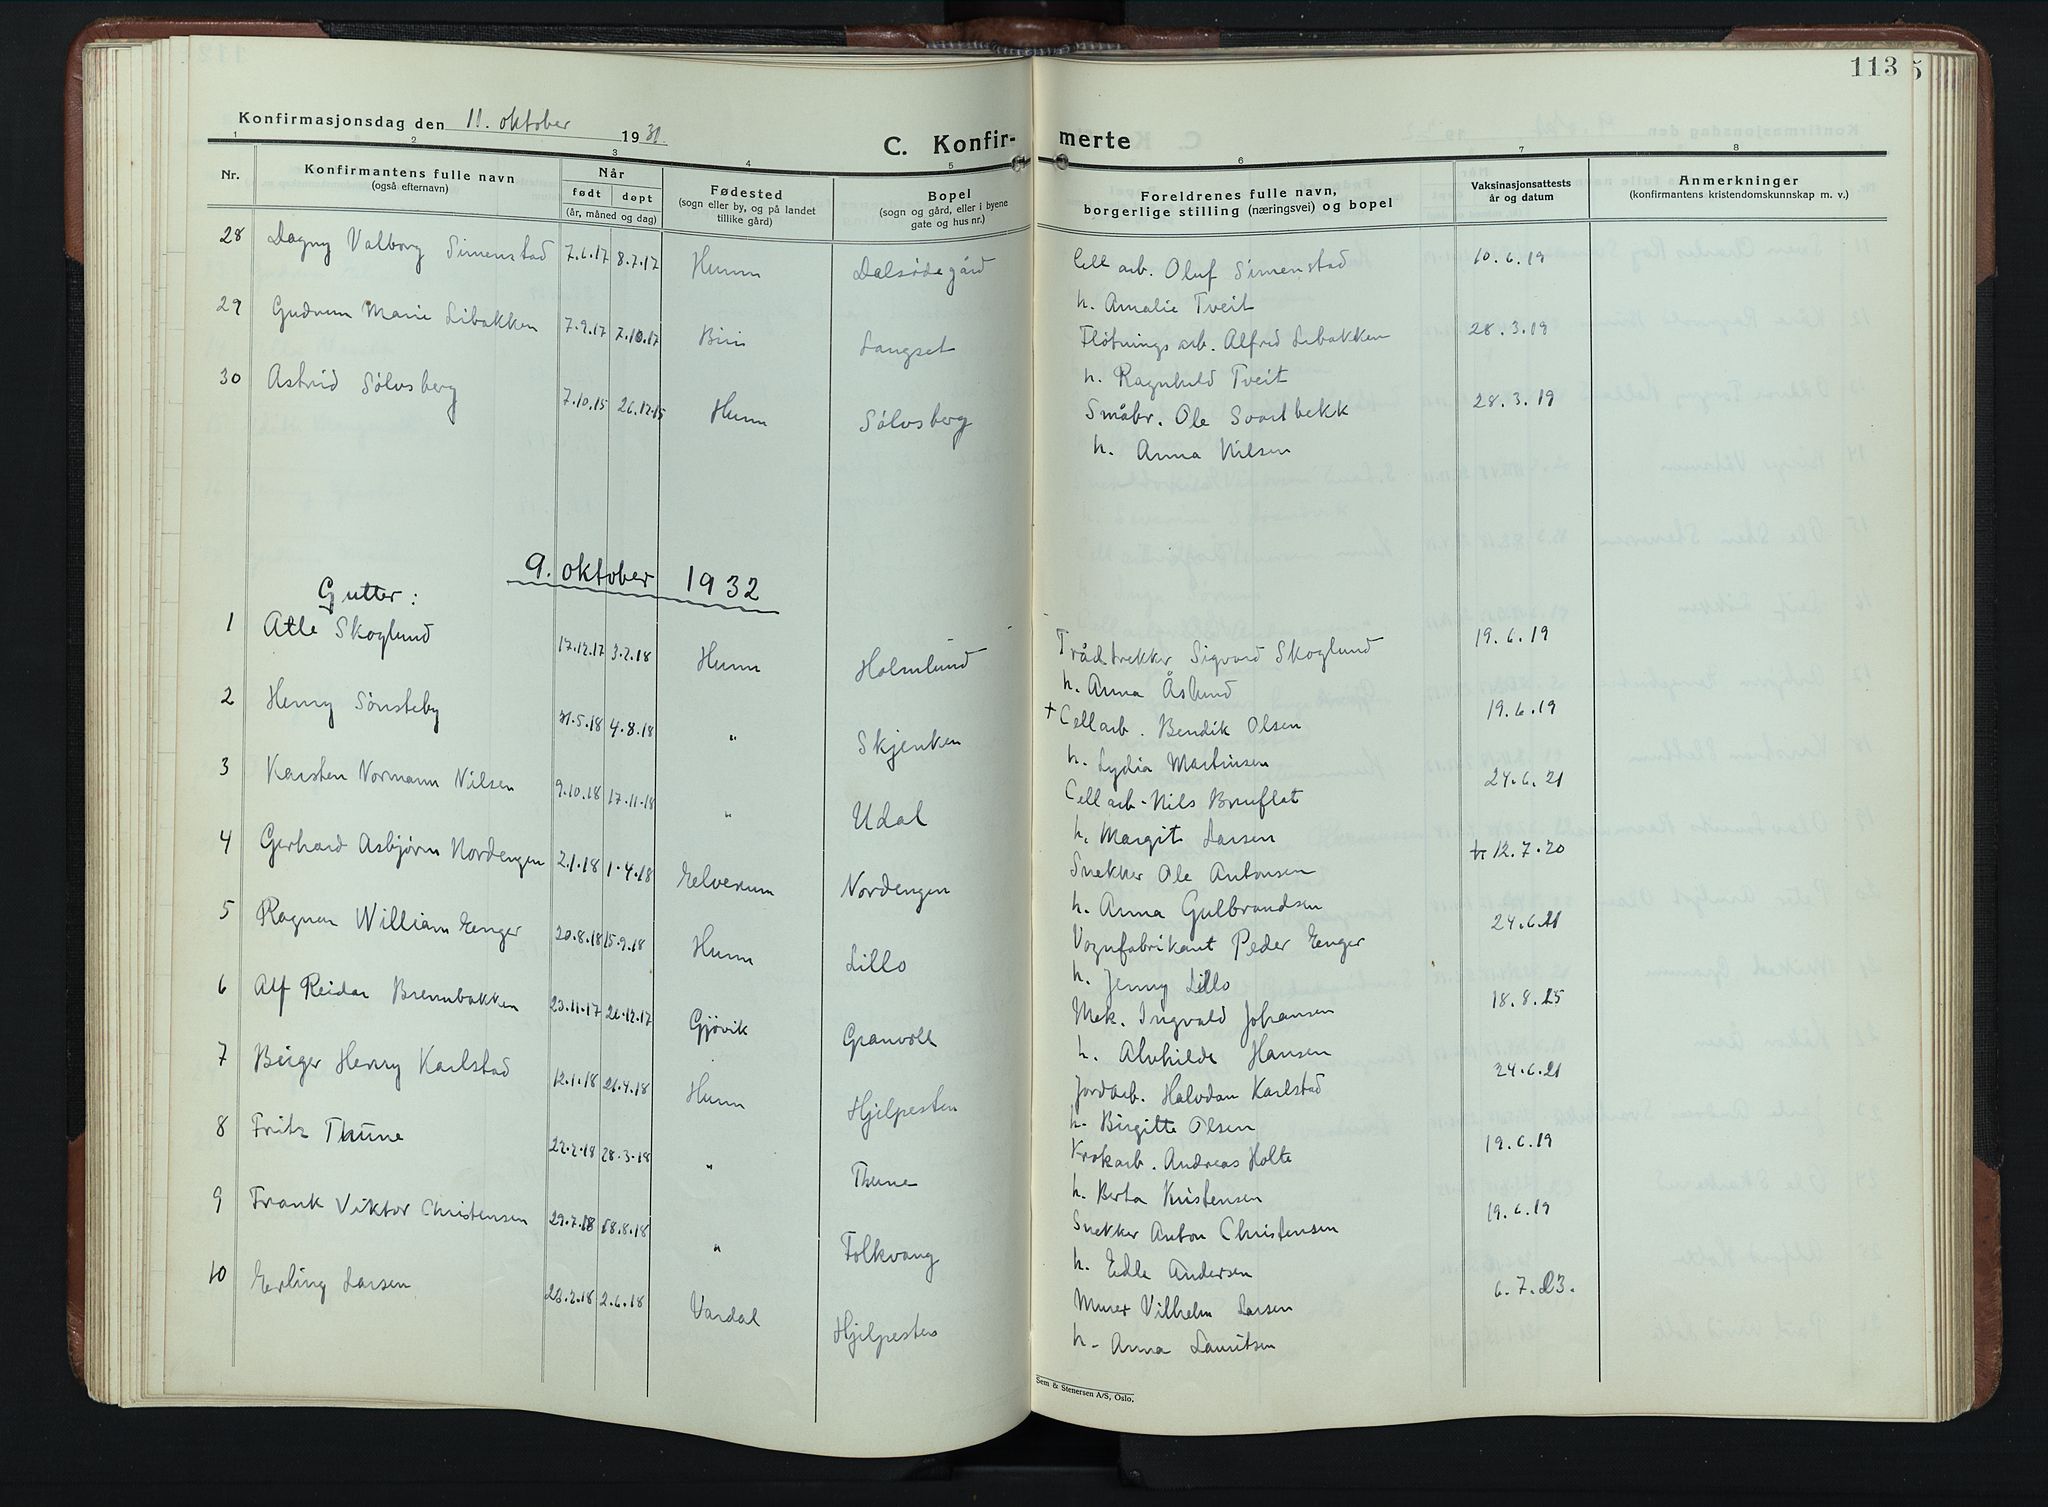 113
Konfirmasjonsdag den 11. oktober 1931.
C. Konfir-merte
1 2 3 4 5 6 7 8
Nr.
Konfirmantens fulle navn
(også efternavn)
Når
født døpt
(år, måned og dag)
Fødested
(sogn eller by, og på landet
tillike gård)
Bopel
(sogn og gård, eller i byene
gate og hus nr.)
Foreldrenes fulle navn,
borgerlige stilling (næringsvei) og bopel
Vaksinasjonsattests
år og datum
Anmerkninger
(konfirmantens kristendomskunnskap m. v.)
28 Dagny Valborg Simenstad 7.6.17 8.7.17 Hunn Dalsødegård Cell arb. Oluf Simenstad 10.6.19
h. Amalie Tveit
29 Gudrun Marie Libakken 7.9.17 7.10.17 Biri Langset Fløtnings arb. Alfred Libakken 28.3.19
h. Ragnhild Tveit
30 Astrid Sølvsberg 7.10.15 26.12.15 Hunn Sølvsberg Småbr. Ole Svartbekk 28.3.19
h. Anna Nilsen
9. oktober 1932
Gutter:
1 Atle Skoglund 17.12.17 3.2.18 Hunn Holmlund Trådtrekker Sigvard Skoglund 19.6.19
h. Anna Åslund
2 Henry Sønsteby 31.5.18 4.8.18 " Skjenken + Cellarb. Bendik Olsen 19.6.19
h. Lydia Martinsen
3 Karsten Normann Nilsen 9.10.18 17.11.18 " Udal Cellarb. Nils Bruflat 24.6.21
h. Margit Larsen
4 Gerhard Asbjørn Nordengen 2.1.18 1.4.18 Elverum Nordengen Snekker Ole Antonsen 12.7.20
h. Anna Gulbrandsen
5 Ragnar William Enger 20.8.18 15.9.18 Hunn Lillo Vognfabrikant Peder Enger 24.6.21
h. Jenny Lillo
6 Alf Reidar Brennbakken 23.11.17 26.12.17 Gjøvik Granvoll Mek. Ingvald Johansen 18.8.25
h. Alvhilde Hansen
7 Birger Henry Karlstad 12.1.18 21.4.18 Hunn Hjelpesten Jordarb. Halvdan Karlstad 24.6.21
h. Birgitte Olsen
8 Fritz Thune 22.2.18 28.3.18 " Thune Krokarb. Andreas Holte 19.6.19
h. Berta Kristensen
9 Frank Viktor Christensen 29.7.18 18.8.18 " Folkvang Snekker Anton Christensen 19.6.19
h. Edle Andersen
10 Erling Larsen 28.2.18 2.6.18 Vardal Hjelpesten Murer Vilhelm Larsen 6.7.23.
h. Anna Lauritsen
Sem & Stenersen A/S, Oslo.